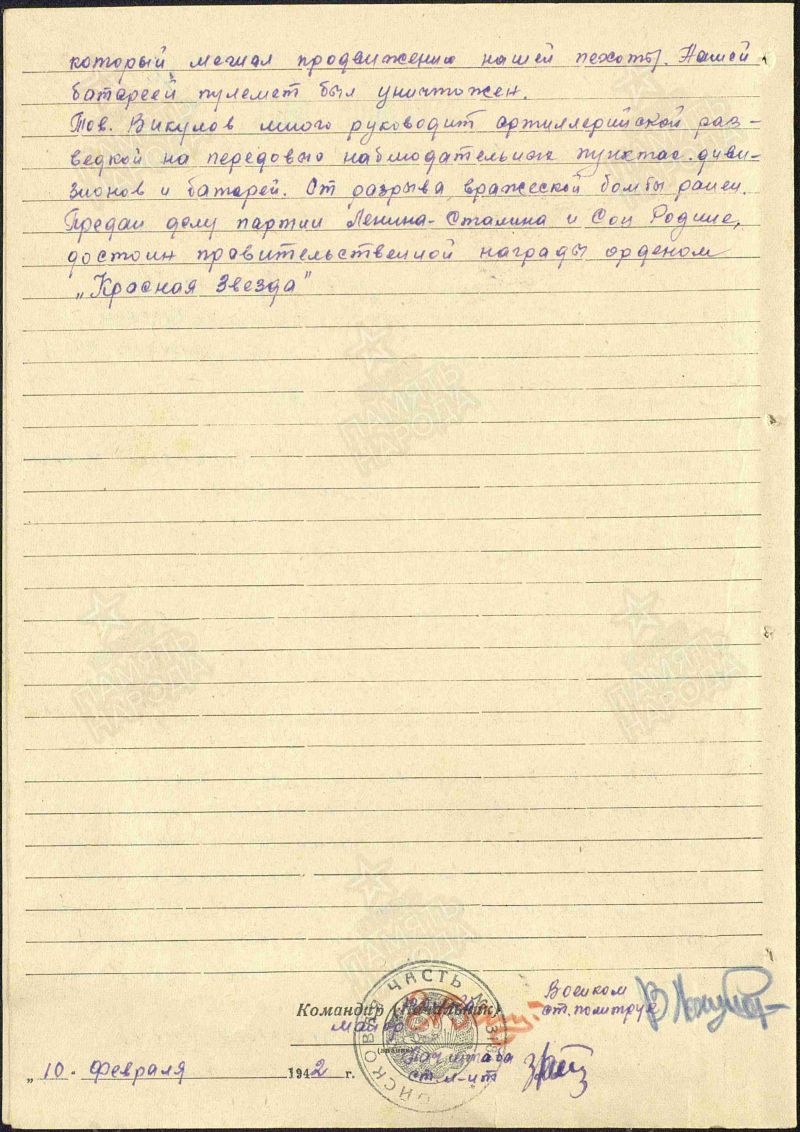 который мешал продвижению нашей пехоты. Нашей
батареей пулемет был уничтожен.
Тов. Викулов много руководит артиллерийской раз-
ведкой на передовых наблюдательных пунктах диви-
зионов и батарей. От разрыва вражеской бомбы ранен.
Предан делу партии Ленина-Сталина и Соц Родине,
достоин правительственной награды орденом
„Красная Звезда"
Командир (начальник)
майор
Военком
ст. политрук
Нач штаба
ст. л-нт
ВОЙСКОВАЯ ЧАСТЬ
„10. февраля 1942 г.
ПАМЯТЬ НАРОДА
ПАМЯТЬ НАРОДА
ПАМЯТЬ НАРОДА
ПАМЯТЬ НАРОДА